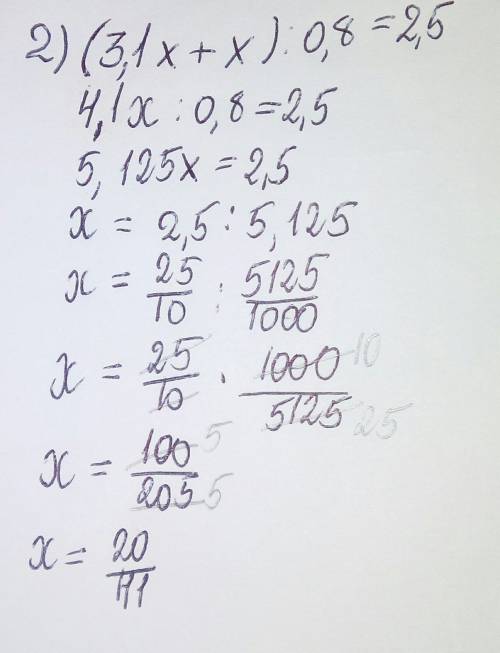 2) (3,1x + x) : 0,8 = 2,5
4,1x : 0,8 = 2,5
5,125x = 2,5
x = 2,5 : 5,125
x = 25/10 : 5125/1000
x = 25/10 · 1000/5125 10 25
x = 100/205 5 5
x = 20/41